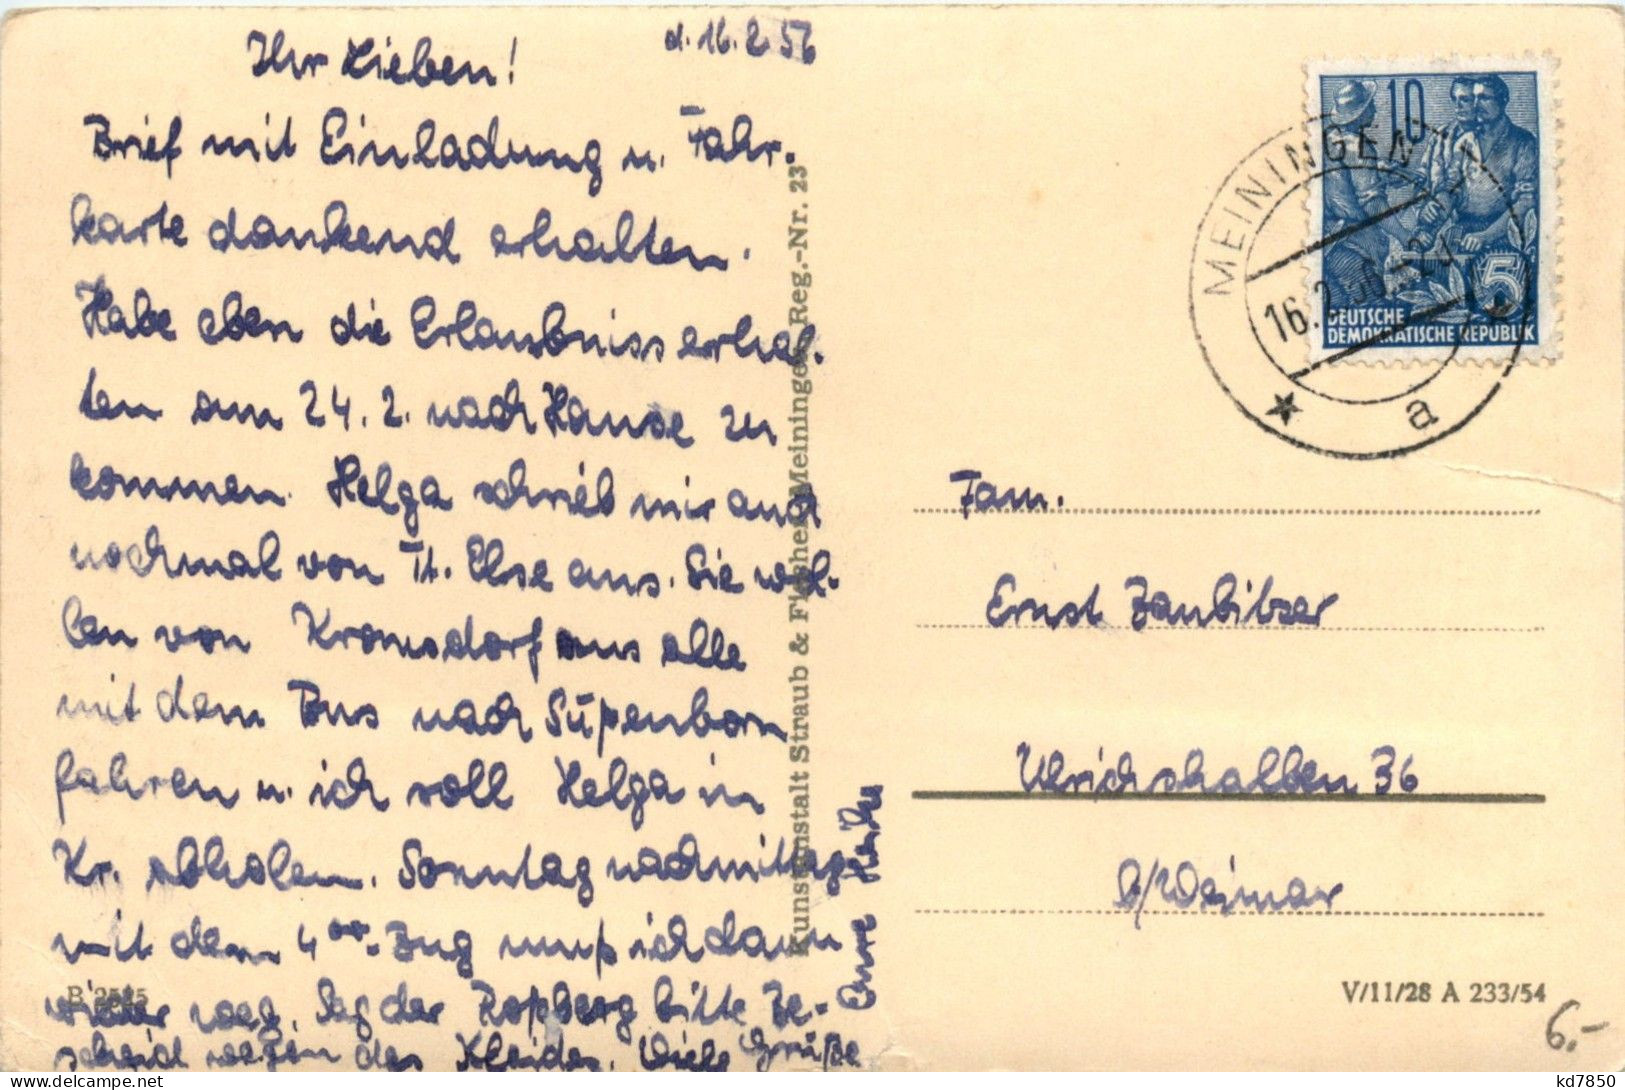 d. 16.2.56
Ihr Lieben!
Brief mit Einladung u. Fahr-
karte dankend erhalten.
Habe eben die Erlaubniss erhal-
ten am 24.2. nach Hause zu
kommen. Helga schrieb mir auch
nochmal von Tt. Else aus. Sie wol-
len von Kromsdorf aus alle
mit dem Bus nach Süßenborn
fahren u. ich soll Helga in
Kr. abholen. Sonntag nachmittag
mit dem 4 Zug muß ich dann
wieder weg. Sag der Roßberg bitte Be-
scheid wegen des Kleides. Viele Grüße
Eure Heike
Kunstanstalt Straub & Fischer Meiningen Reg.-Nr. 23
B 2515
10
MEININGEN
16.2.56
a
5
DEUTSCHE
DEMOKRATISCHE REPUBLIK
Fam.
Ernst Zaubitzer
Ulrichshalben 36
b/Weimar
V/11/28 A 233/54
6.-
kd7850